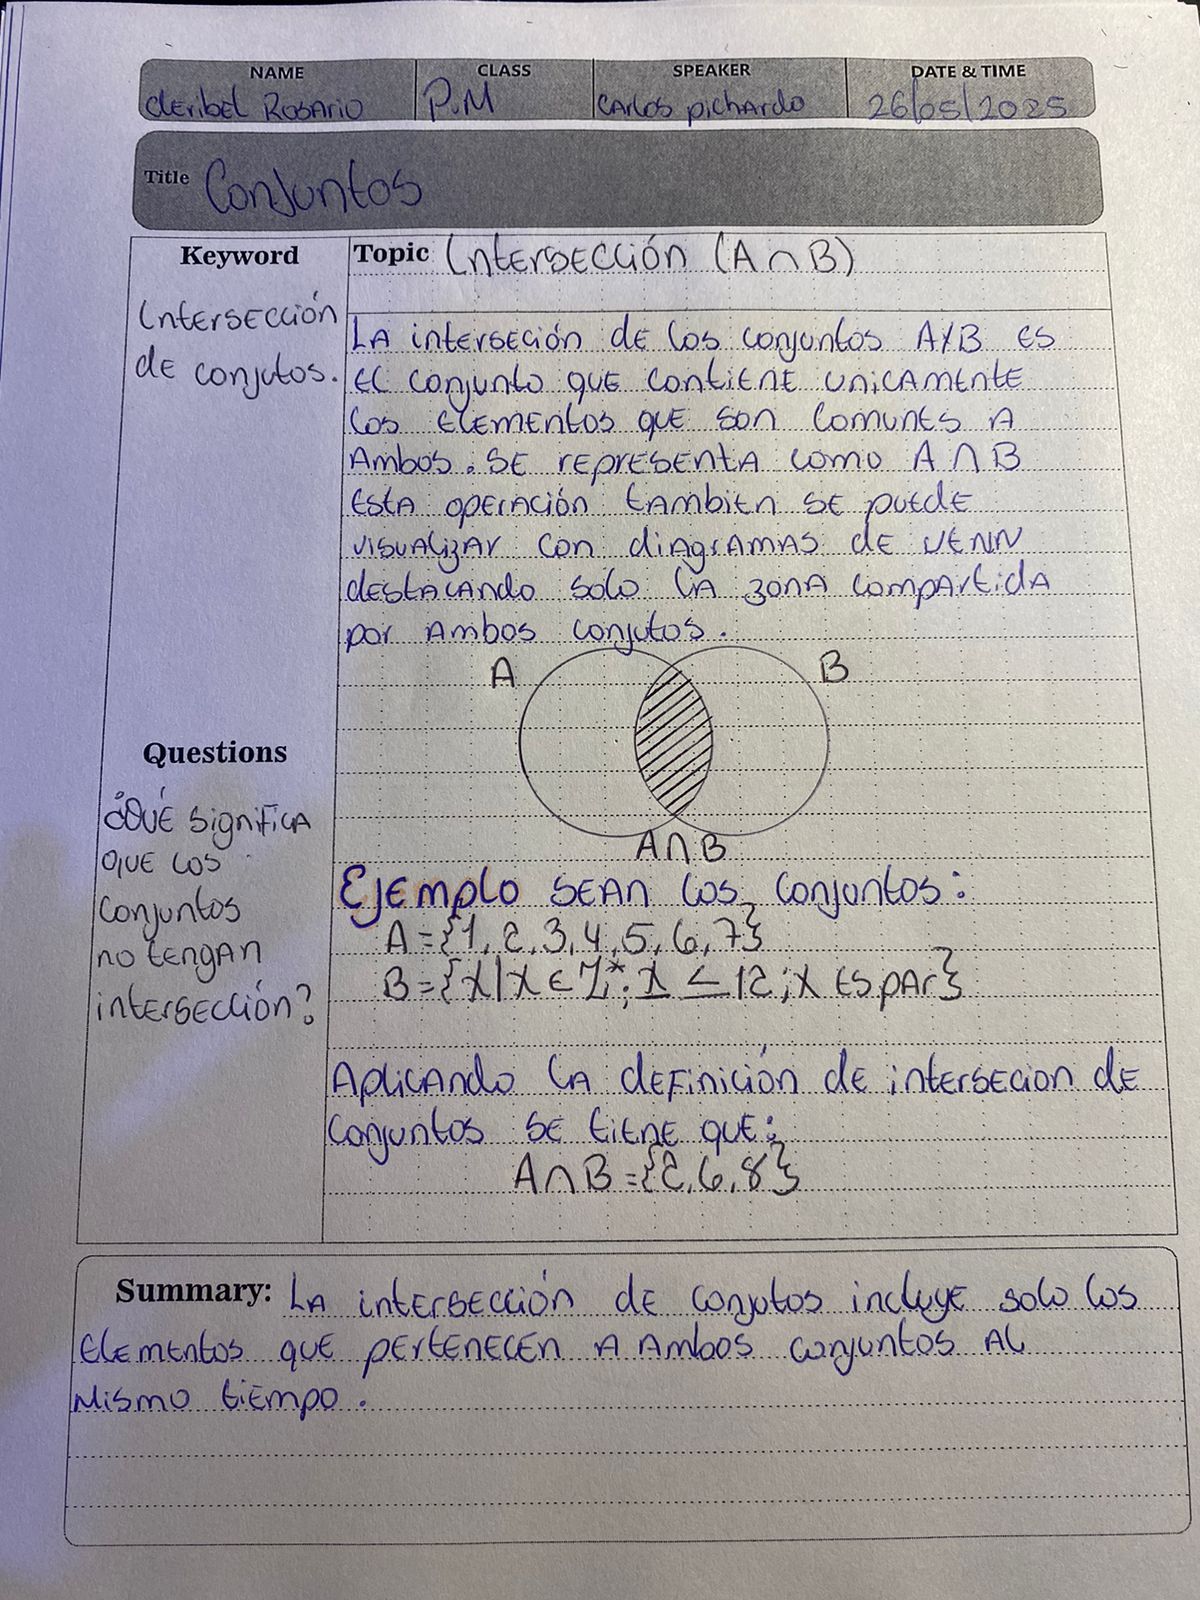 NAME CLASS SPEAKER DATE & TIME
cleribel Rosario P.M Carlos pichardo 26/05/2025
Title Conjuntos
Keyword
Intersección
de conjutos.
Topic Intersección (A∩B)
La interseción de los conjuntos A y B es
el conjunto que contiene unicamente
los elementos que son comunes a
Ambos. Se representa como A ∩ B
Esta operación tambien se puede
visualizar con diagramas de Venn
destacando solo la zona compartida
por Ambos conjutos.
A B
A∩B
Questions
¿Qué significa
que los
conjuntos
no tengan
intersección?
Ejemplo sean los conjuntos:
A={1,2,3,4,5,6,7}
B={x|x∈Z*; x ≤ 12; x es par}
Aplicando la definición de intersecion de
conjuntos se tiene que:
A∩B={2,6,8}
Summary: La intersección de conjutos incluye solo los
elementos que pertenecen a Ambos conjuntos al
mismo tiempo.